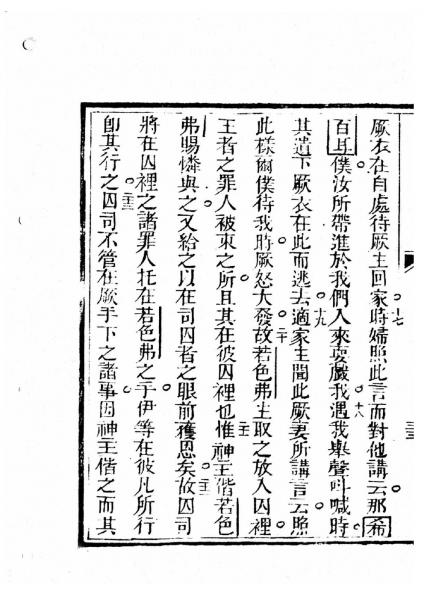 厥衣在自處待厥主回家時十七婦照此言而對他講云那希
百耳僕汝所帶進於我們入來耍戲我十八遇我舉聲呌喊時
其遺下厥衣在此而逃去十九適家主聞此厥妻所講言云照
此樣爾僕待我時厥怒大發二十故若色弗主取之放入囚裡
王者之罪人被束之所且其在彼囚裡也二一惟神主偕若色
弗賜憐與之又給之以在司囚者之眼前獲恩矣二二故囚司
將在囚裡之諸罪人托在若色弗之手伊等在彼凡所行
卽其行之二三囚司不管在厥手下之諸事因神主偕之而其